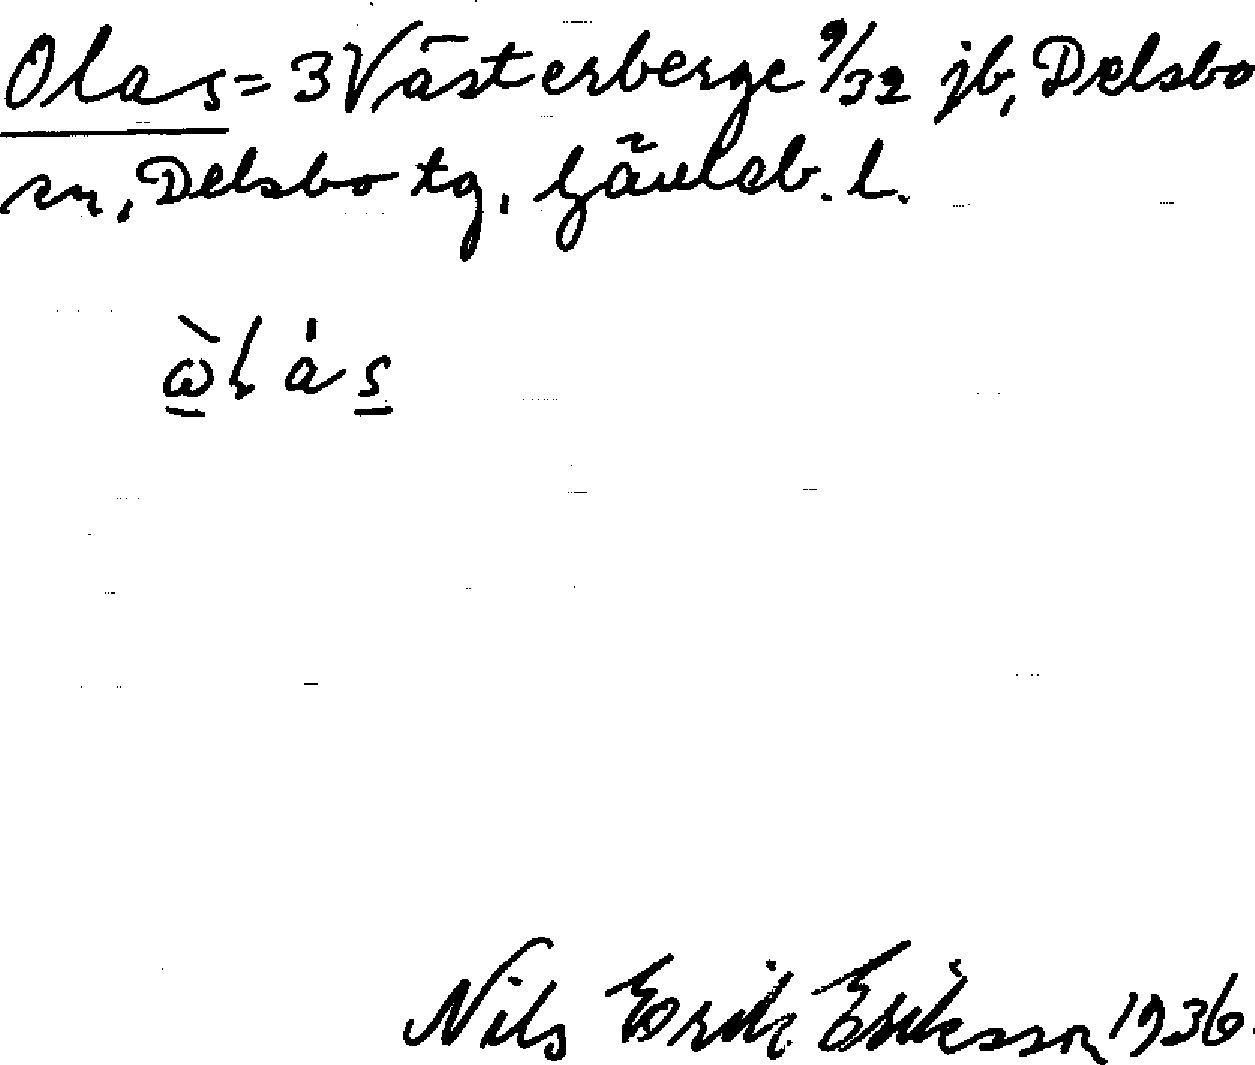 Olas = 3 Västerberge 9/32 jb, Delsbo
sn, Delsbo tg, Gävleb. l.
ὼl a̍ s
Nils Erik Eriksson 1936.